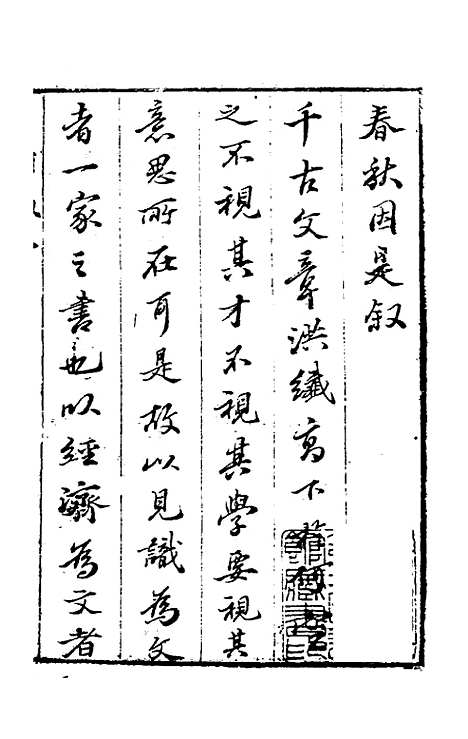 春秋因是叙
千古文章洪纖高下
之不視其才不視其學要視其
意思所在耳是故以見識為文
者一家之書也以經濟為文者